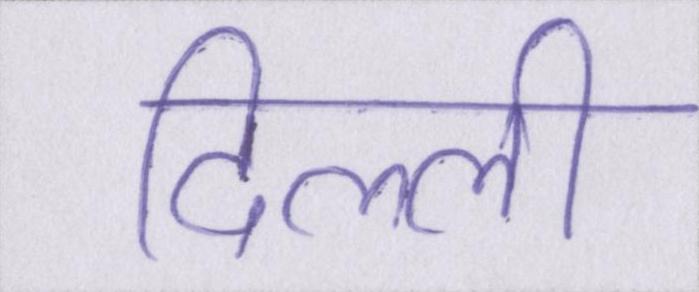 दिल्ली